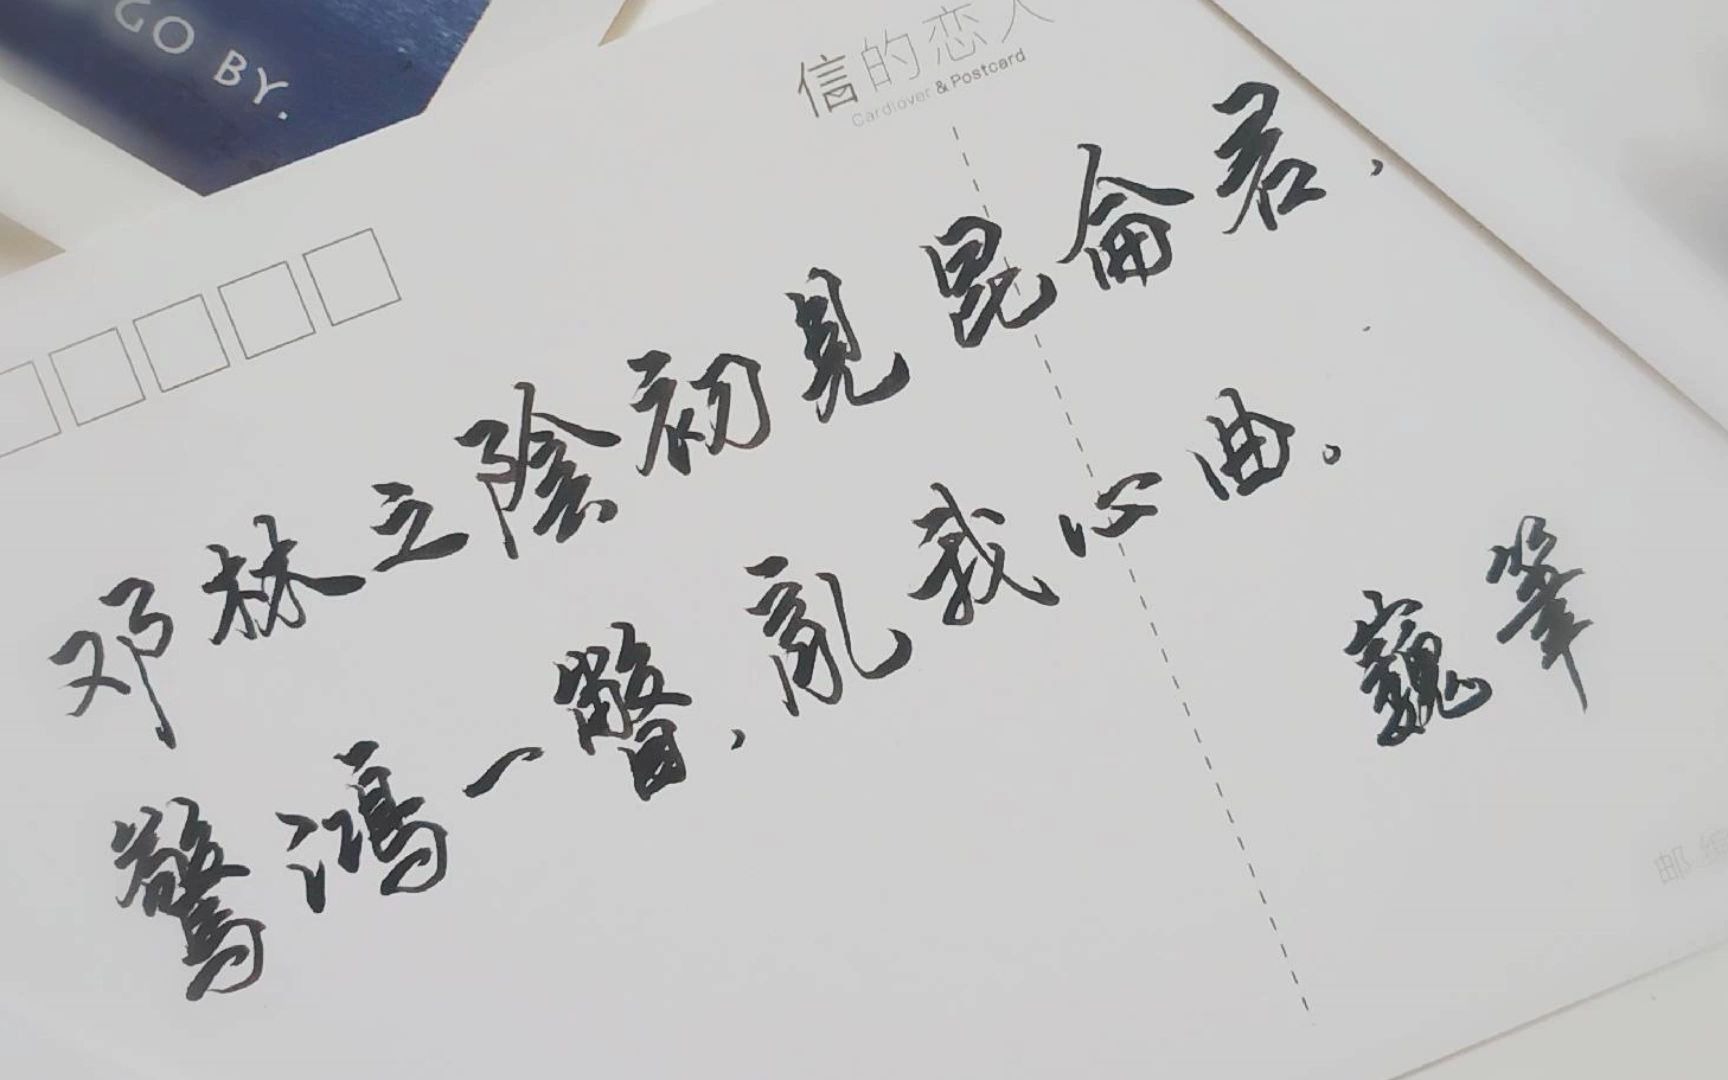 GO BY.
信的恋人
Cardlover & Postcard
邓林之陰初見昆侖君,
驚鴻一瞥,亂我心曲。
巍筆
邮编